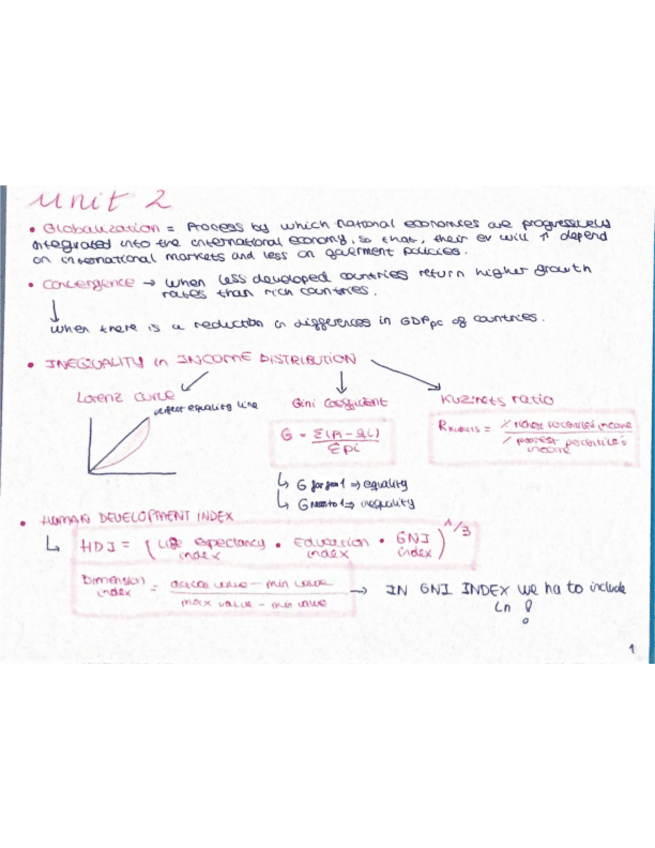 Unit 2
• Globalization = Process by which national economies are progressively
integrated into the international economy, so that, their ev will ↑ depend
on international markets and less on goverment policies.
• Convergence → when less developed countries return higher growth
rates than rich countries.
↓
when there is a reduction in differences in GDPpc of countries.
• INEQUALITY in INCOME DISTRIBUTION
Lorenz curve
perfect equality line
Gini Coefficient
G = Σ(Pi - qi) / Σpi
↳ G far from 1 ⇒ equality
↳ G near to 1 ⇒ inequality
Kuznets ratio
R Kuznets = % richest percentile's income / % poorest percentile's income
• HUMAN DEVELOPMENT INDEX
↳ HDI = (Life expectancy index • Education index • GNI index)^1/3
Dimension index = actual value - min value / max value - min value
→ IN GNI INDEX we ha to include
Ln !
1